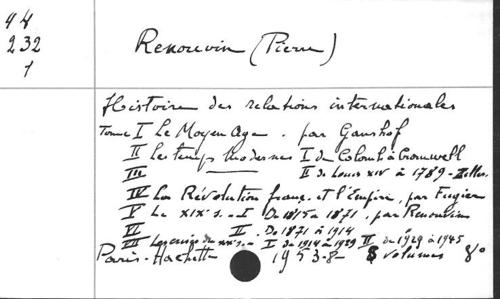 44
232
1
Renouvin (Pierre)
Histoire des relations internationales
Tome I Le Moyen Age. par Ganshof
II Les temps modernes I de Colomb à Cromwell
III II de Louis XIV à 1789 - Zeller
IV La Révolution franç. et l'Empire, par Fugier
V Le XIXe s. - I De 1815 à 1871, par Renouvin
VI II. De 1871 à 1914
VII Les crises du XXe s. - I de 1914 à 1929 II de 1929 à 1945
Paris - Hachette 1953-8 8 volumes 8o